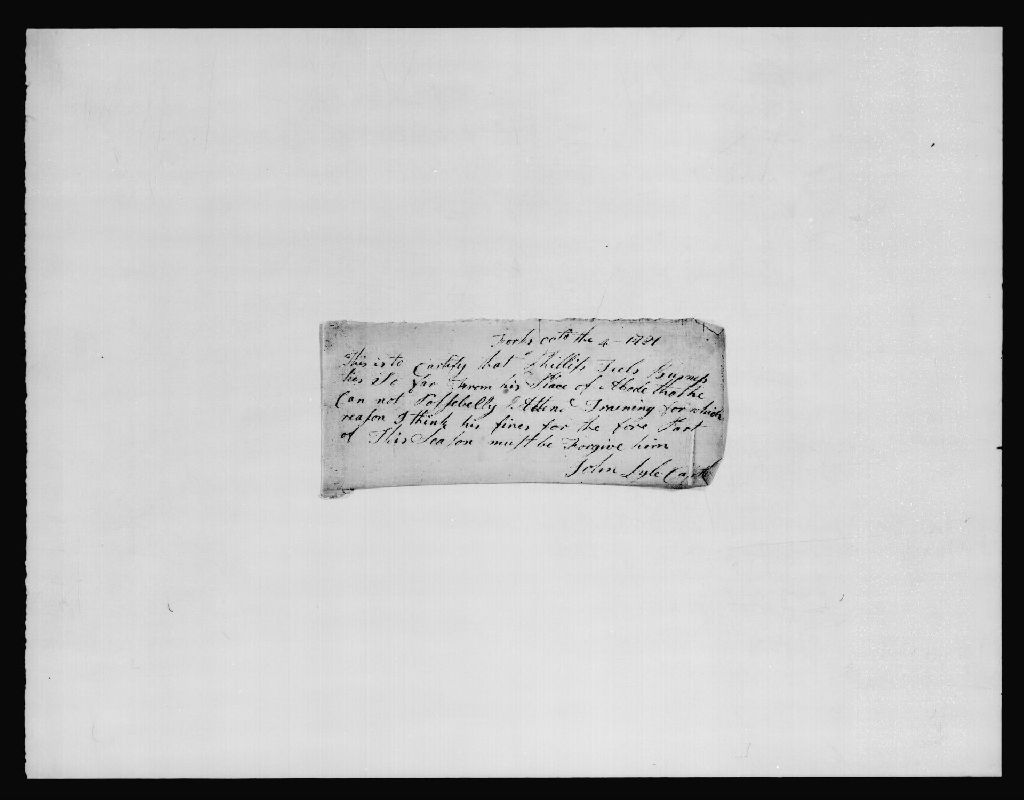 Forks octb the 4 - 1781
This is to Cartify that Phillip Fuls Busness
lies so far from his Place of Abode that he
Can not Possebelly Attend Training for which
reason I think his fines for the fore Part
of This Season must be Forgive him
John Lyle Capt